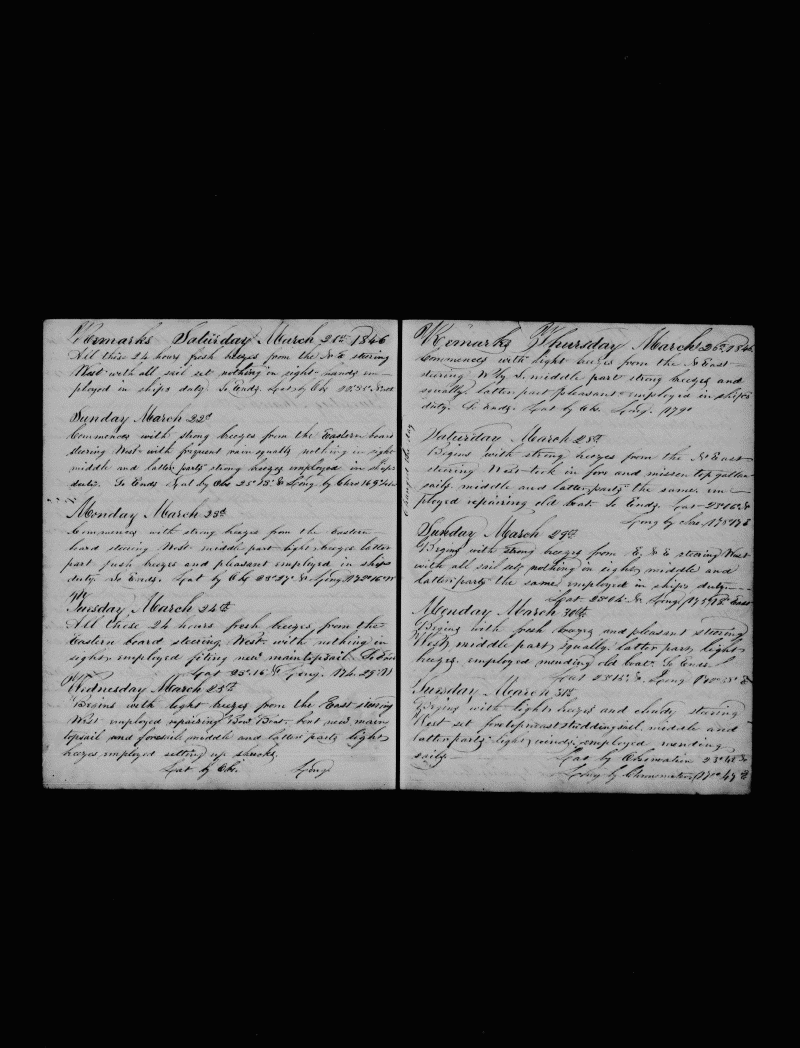 Remarks Saturday March 21st 1846
All this 24 hours fresh breezes from the N E steering
West with all sail set nothing in sight hands em-
ployed in ships duty. So Ends Lat by Obs
Sunday March 22d
Commences with strong breezes from the Eastern board
steering West with frequent rain squalls nothing in sight
middle and latter parts strong breezes employed in ships
duty. So Ends Lat by Obs 25° 13' S Long by Chro
Monday March 23d
Commences with strong breezes from the Eastern
board steering West middle part light breezes latter
part fresh breezes and pleasant employed in ships
duty So Ends. Lat by Obs 23° 27' S Long
Tuesday March 24th
All these 24 hours fresh breezes from the
Eastern board steering West with nothing in
sight employed fiting new maintopsail So Ends
Lat 23° 15' S Long.
Wednesday March 25th
Begins with light breezes from the East steering
West employed repairing Bow Boat. bent new main
topsail and foresail middle and latter parts light
breezes employed setting up shooks.
Lat by Obs. Long
Remarks Thursday March 26th 1846
Commences with light breezes from the N East
steering W by S. middle part strong breezes and
squally. latter part pleasant employed in ships
duty. So Ends. Lat by Obs. Long. 179°
Changed the day
Saturday March 28th
Begins with strong breezes from the N East
steering West took in fore and mizzen top gallant
sails. middle and latter parts the same. em-
ployed repairing old boat. So Ends. Lat 23° 06' S
Long by Chro. 178° 17' E
Sunday March 29th
Begins with strong breezes from E, N E steering West
with all sail set nothing in sight middle and
latter parts the same employed in ships duty.
Lat 23° 04' S. Long. East
Monday March 30th
Begins with fresh breezes and pleasant steering
West, middle part, squally. latter part, light
breezes. employed mending old boat. So Ends.
Lat 23° 15'. S. Long
Tuesday March 31st
Begins with light breezes and cloudy steering
West set foretopmast studdingsail. middle and
latter parts light winds employed mending
sails. Lat by Observation S
Long by Chronometer 47' E